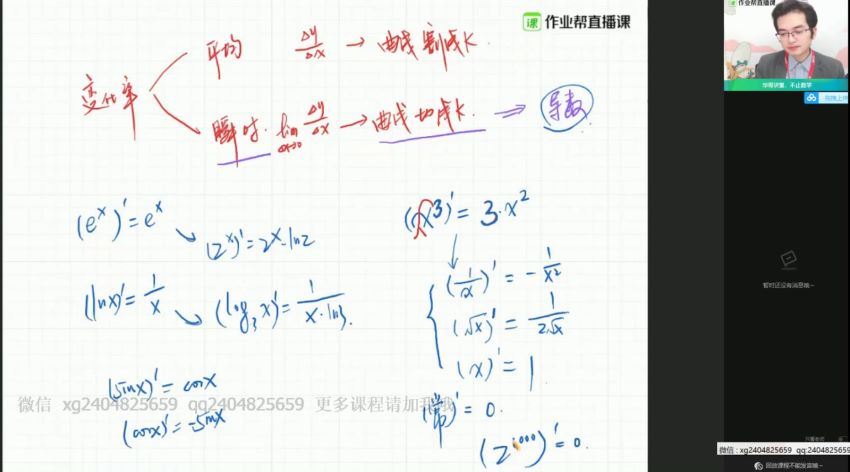 作业帮直播课
变化率
平均 Δy/Δx → 曲线割线k.
瞬时. lim Δx→0 Δy/Δx → 曲线切线k. ⇒ 导数
(e^x)' = e^x
(2^x)' = 2^x·ln2
(lnx)' = 1/x
(log₃x)' = 1/(x·ln3).
(sinx)' = cosx
(cosx)' = -sinx
(x³)' = 3·x²
(1/x)' = -1/x²
(√x)' = 1/(2√x)
(x)' = 1
(常)' = 0.
(2^1000)' = 0.
微信 xg2404825659 qq2404825659 更多课程请加我哦
作业帮直播课
不止数学
拖拽上传
暂时还没有消息哦~
微信:xg2404825659 qq:2404825659
回放课程不能发言哦~